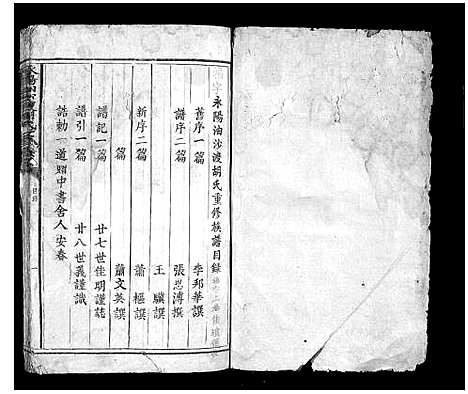 永陽泊沙渡胡氏重修族譜目錄
舊序一篇 李邦華譔
譜序二篇 張恩溥撰
王驥譔
新序二篇 蕭樞譔
篇 蕭文英譔
譜記一篇 廿七世佳明謹誌
譜引一篇 廿八世義謹識
誥勅一道 贈中書舍人安春